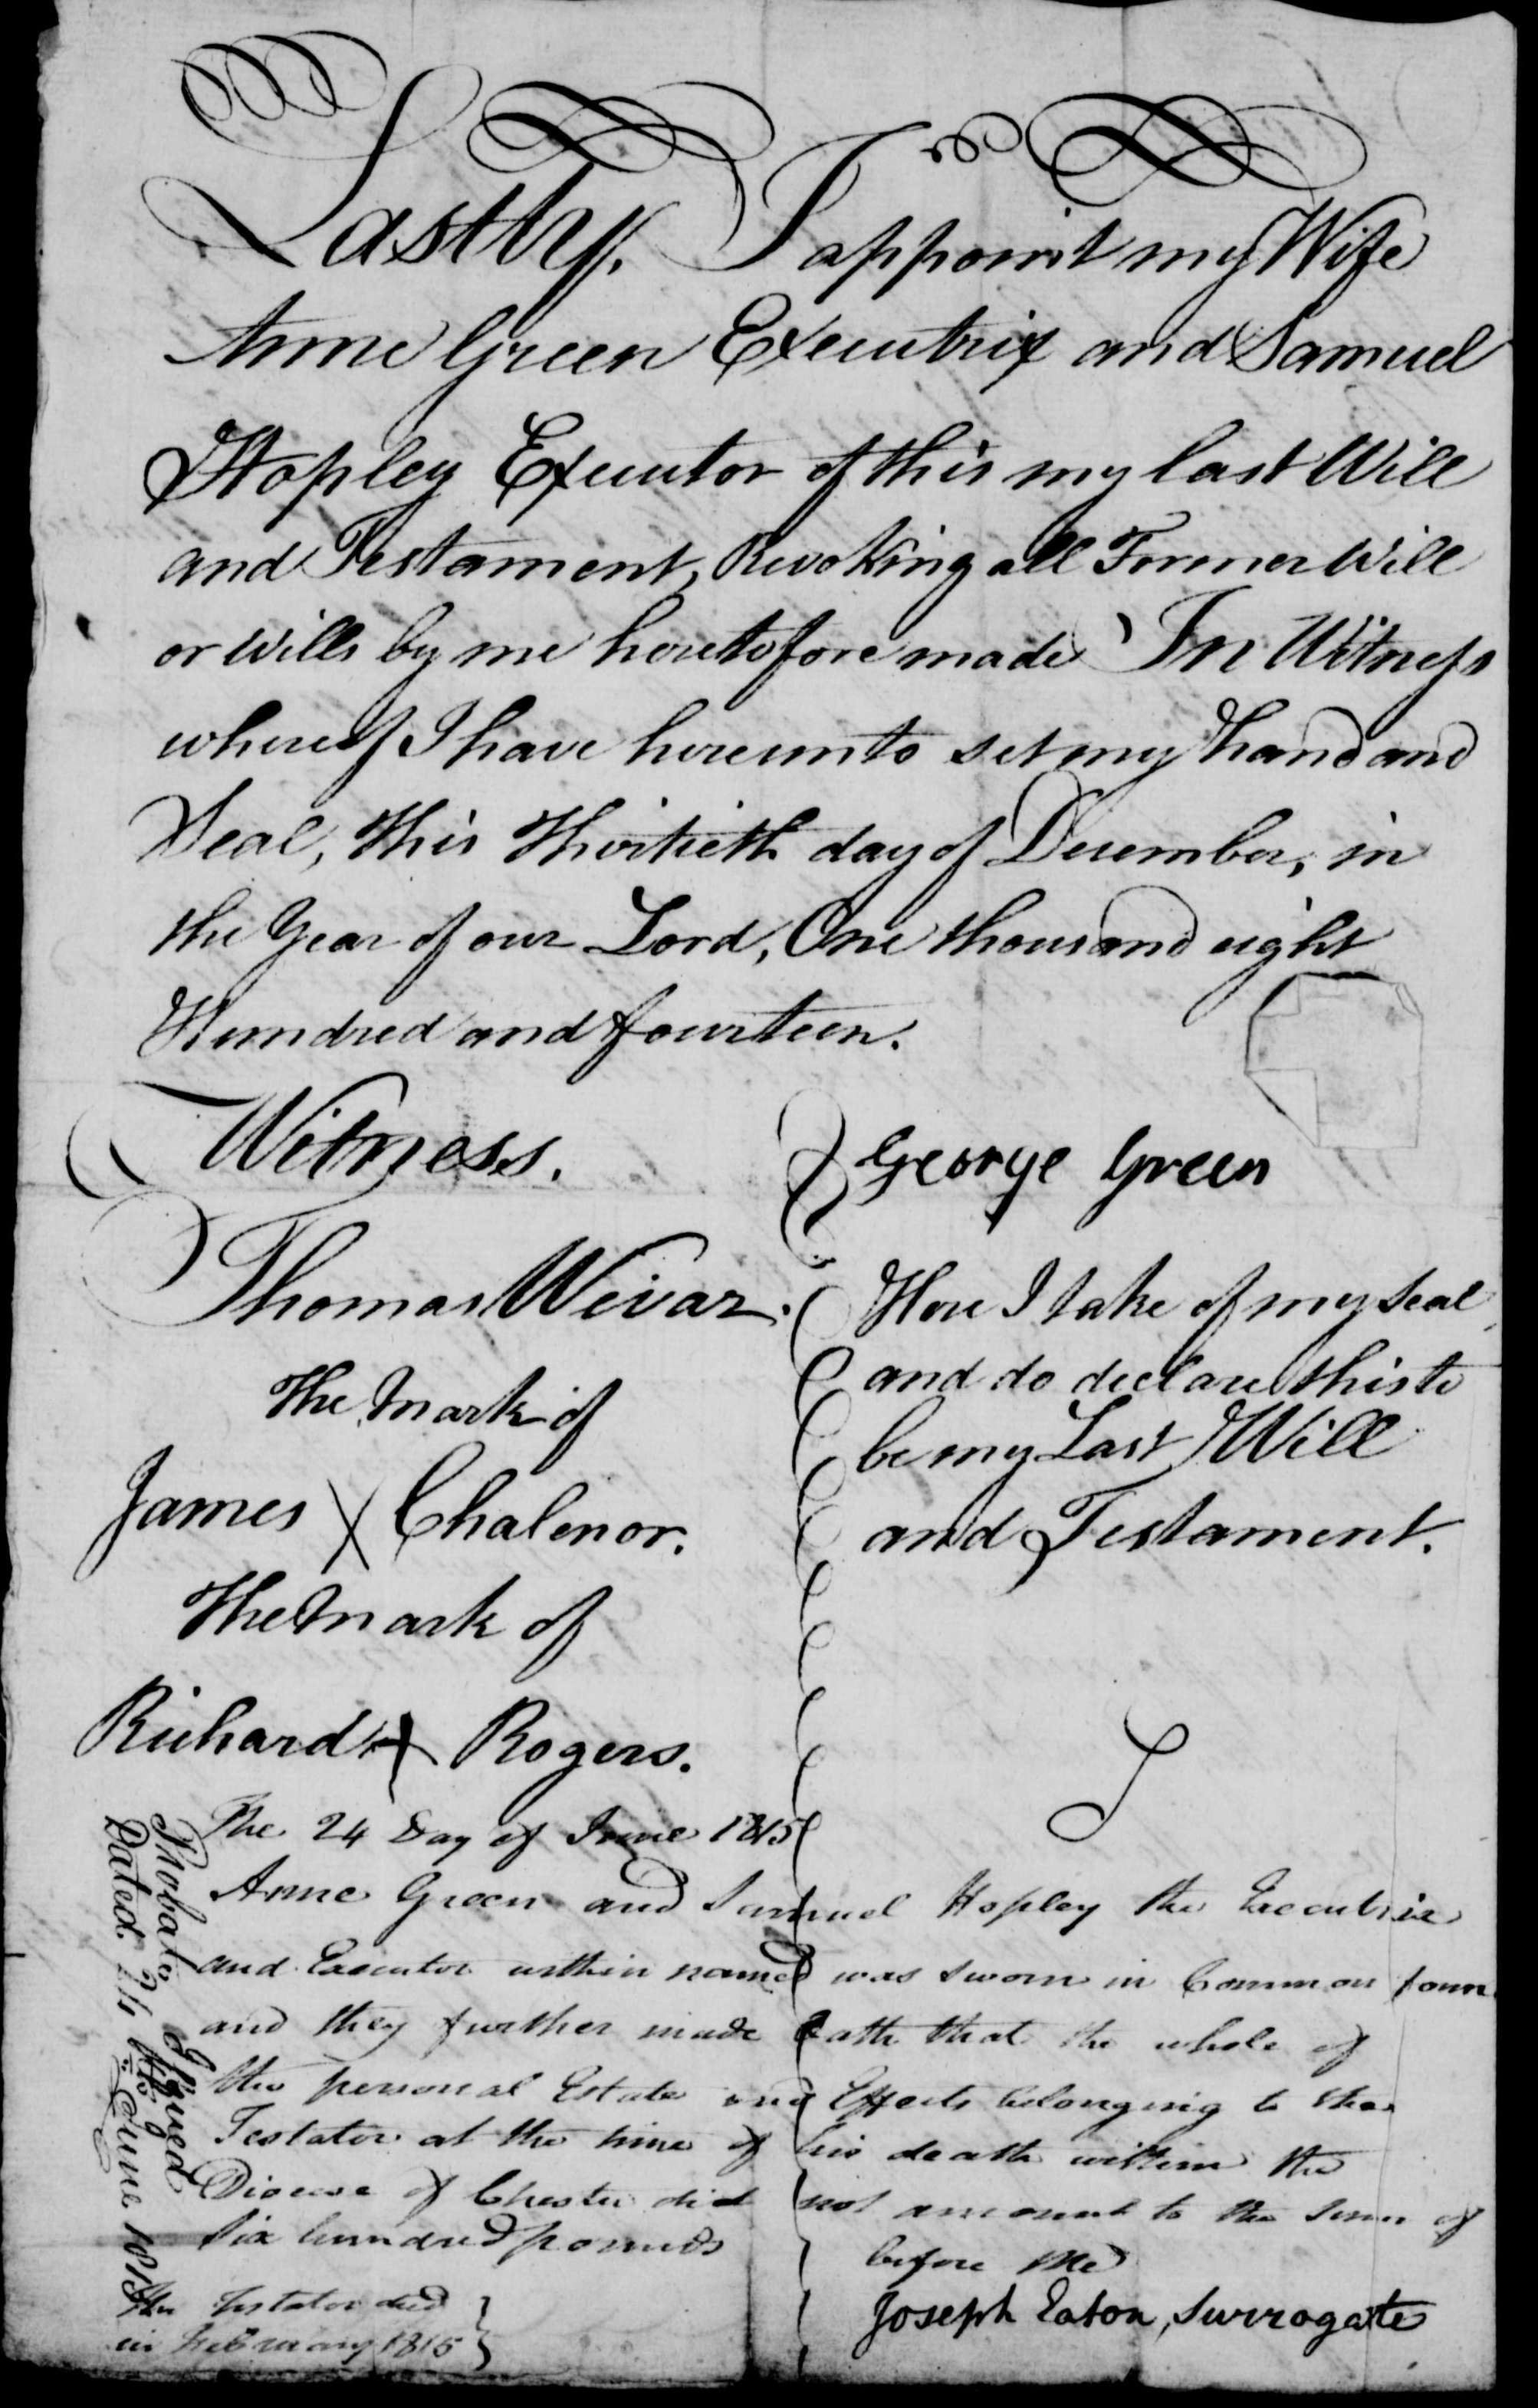 Lastly, I appoint my Wife
Anne Green Executrix and Samuel
Hopley Executor of this my last Will
and Testament, Revoking all Former Will
or Wills by me heretofore made In Witness
whereof I have hereunto set my hand and
Seal, this Thirtieth day of December, in
the Year of our Lord, One thousand eight
Hundred and fourteen.
Witness.
Thomas Wevar.
The Mark of
James X Chalenor.
The Mark of
Richard X Rogers.
George Green
Here I take of my Seal
and do declare this to
be my Last Will
and Testament.
The 24 Day of June 1815
Anne Green and Samuel Hopley the Executrix
and Executor within named was sworn in Common form
and they further made Oath that the whole of
the personal Estate and Effects belonging to the
Testator at the time of his death within the
Diocese of Chester did not amount to the Sum of
Six hundred pounds before Me
Joseph Eaton, Surrogate
The Testator died
in February 1815
Probate Issued
Dated 24th June 1815